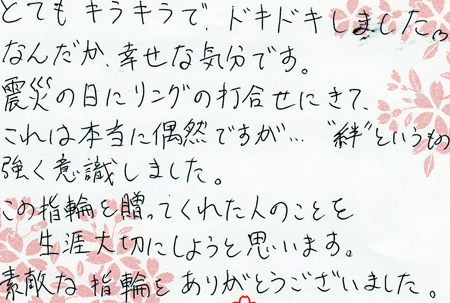 とても キラキラで、ドキドキしました。
なんだか、幸せな気分です。
震災の日にリングの打合せにきて、
これは本当に偶然ですが… "絆"というもの
強く意識しました。
この指輪を贈ってくれた人のことを
生涯大切にしようと思います。
素敵な指輪を ありがとうございました。